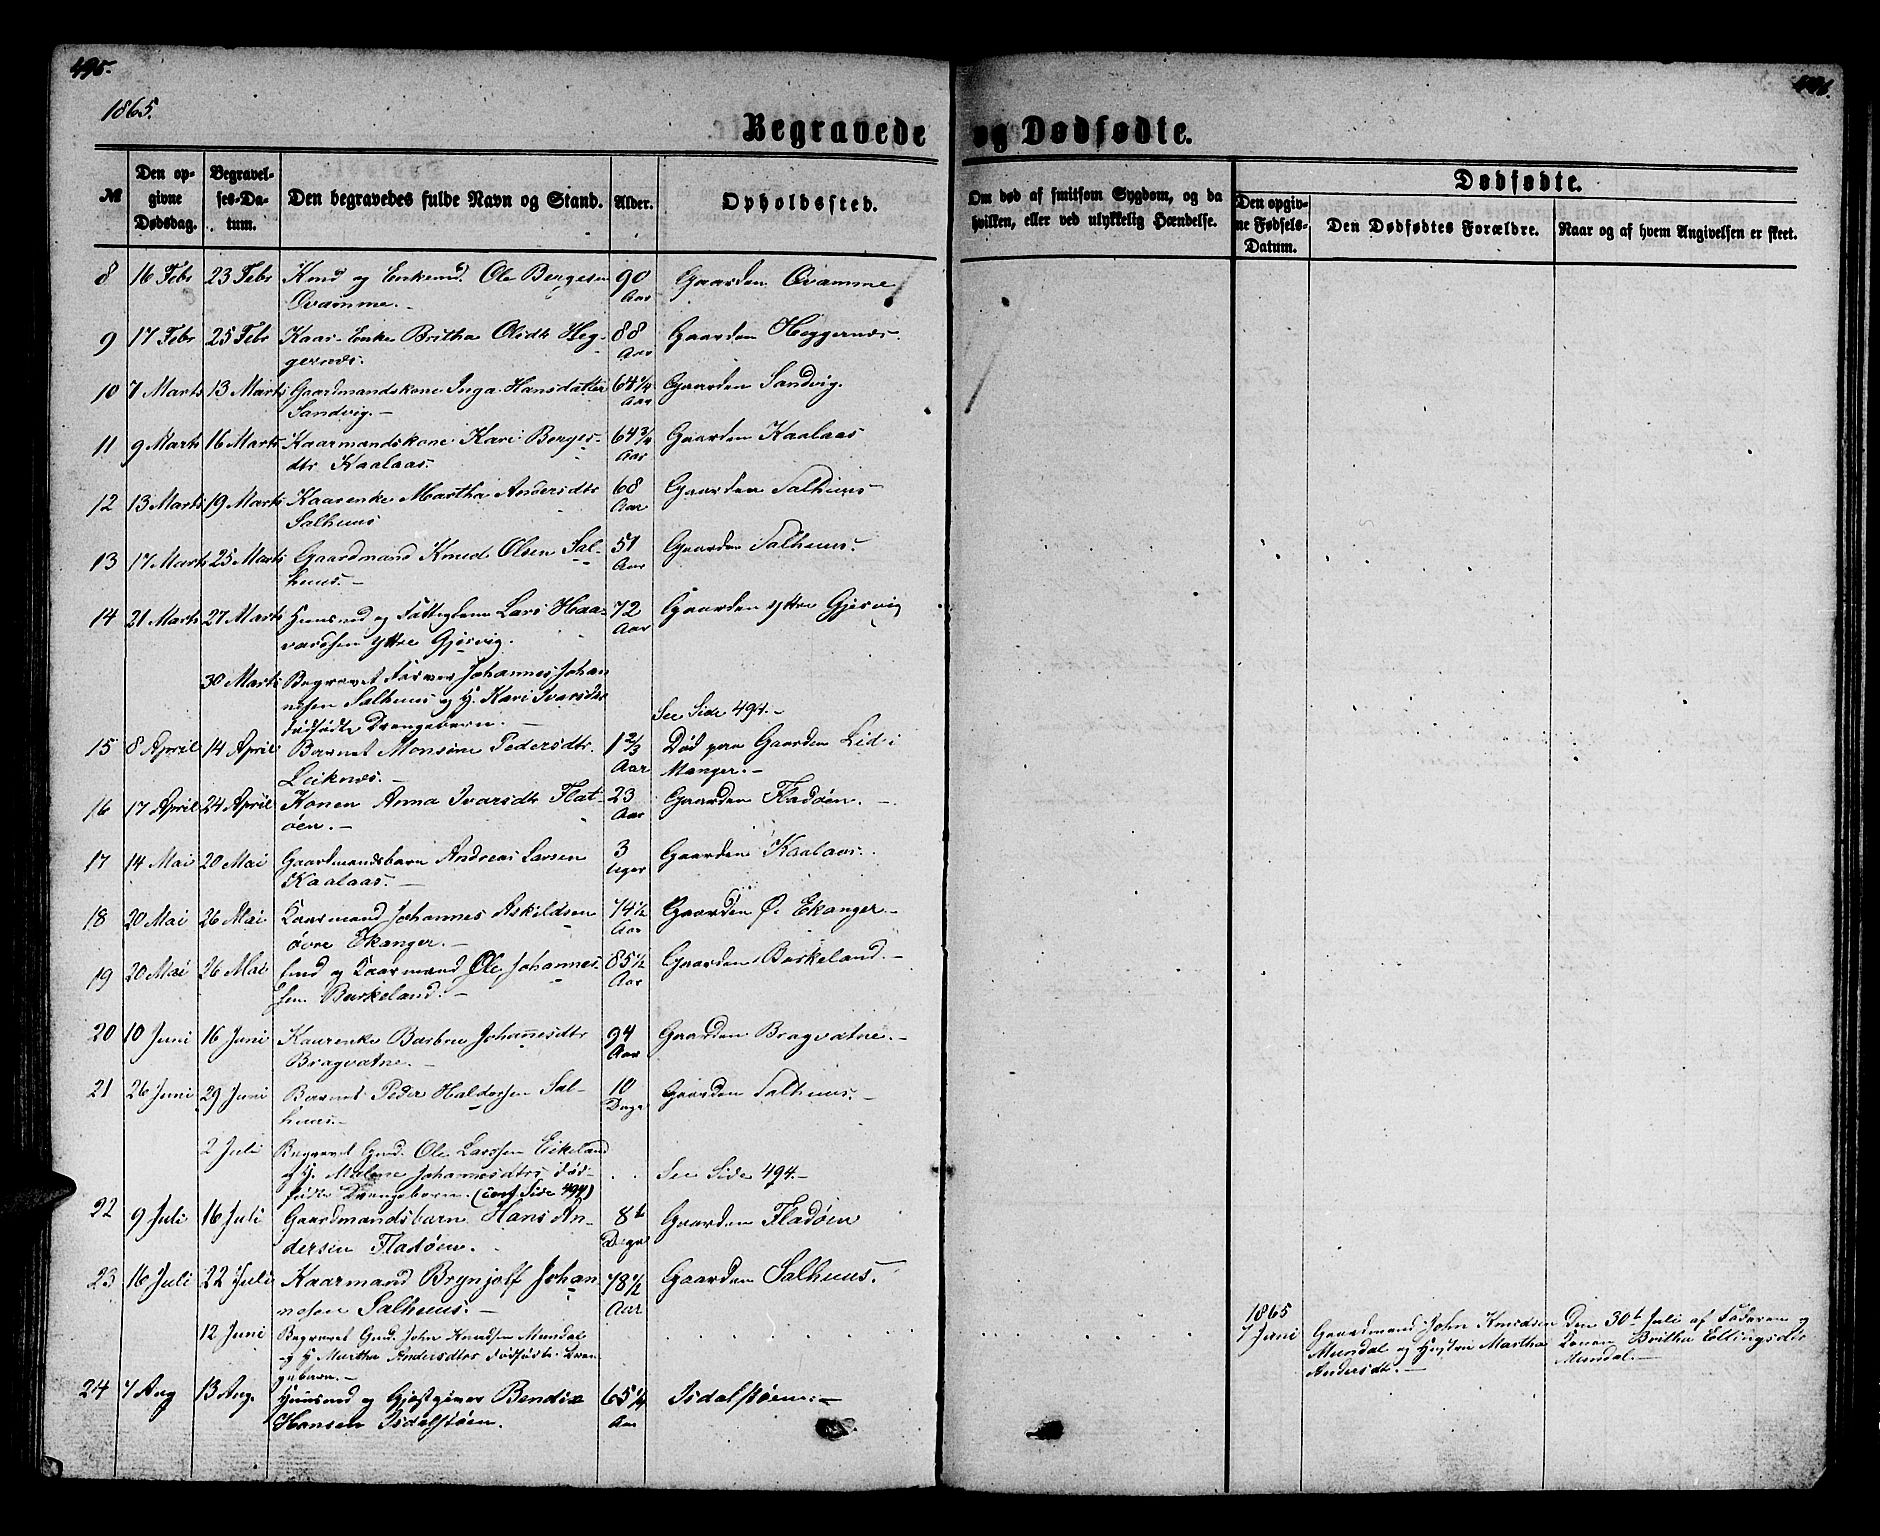 495.
496.
1865.
Begravede
og Dødfødte.
№
Den op-
givne
Dødsdag.
Begravel-
ses-Da-
tum.
Den begravedes fulde Navn og Stand.
Alder.
Opholdssted.
Om død af smitsom Sygdom, og da
hvilken, eller ved ulykkelig Hændelse.
Dødfødte.
Den opgiv-
ne Fødsels-
Datum.
Den Dødfødtes Forældre.
Naar og af hvem Angivelsen er skeet.
8 16 Febr 23 Febr og Enkemd. Ole Bergesen 90 Gaarden Qvamme
Qvamme.- Aar
9 17 Febr 25 Febr Kaar-Enke Britha Olsdtr Heg- 88 Gaarden Heggernæs.
gernæs. Aar
10 7 Marts 13 Marts Gaardmandskone Inga Hansdatter 64 1/4 Gaarden Sandvig.
Sandvig.- Aar
11 9 Marts 16 Marts Kaarmandskone Kari Berges- 64 3/4 Gaarden Kaalaas
dtr Kaalaas. Aar
12 13 Marts 19 Marts Kaarenke Martha Andersdtr 68 Gaarden Salhuus
Salhuus Aar
13 17 Marts 25 Marts Gaardmand Knud Olsen Sal- 51 Gaarden Salhuus.
huus.- Aar
14 21 Marts 27 Marts Huusmd og Fattiglem Lars Haa- 72 Gaarden yttre Gjervig
vardsen yttre Gjervig. Aar
30 Marts Begravet Farver Johannes Johan
nesen Salhuus og H. Kari Ivarsdtr
dødfødte Drengebarn.- See Side 494.-
15 8 April 14 April Barnet Monsine Pedersdtr. 1 2/3 Død paa Gaarden Lid i
Leiknes.- Aar Manger.-
16 17 April 24 April Konen Anna Ivarsdtr Flat- 23 Gaarden Fladøen.-
øen.- Aar
17 14 Mai 20 Mai Gaardmandsbarn Andreas Larsen 3 Gaarden Kaalaas.
Kaalaas.- Uger
18 20 Mai 26 Mai Kaarmand Johannes Askildsen 74 1/2 Gaarden Ø. Ekanger.-
øvre Ekanger.- Aar
19 20 Mai 26 Mai og Kaarmand Ole Johannes- 85 1/2 Gaarden Birkeland.-
sen Birkeland.- Aar
20 10 Juni 16 Juni Kaarenke Barbra Johannesdtr 94 Gaarden Bragvatne.-
Bragvatne.- Aar
21 26 Juni 29 Juni Barnet Peder Haldorsen Sal- 10 Gaarden Salhuus.-
huus.- Dage
2 Juli Begravet Gmd. Ole Larssen Eikeland
og H. Malene Johannesdtrs død-
fødte Drengebarn. (conf Side 494) See Side 494.-
22 9 Juli 16 Juli Gaardmandsbarn Hans An- 8 Gaarden Fladøen
dersen Fladøen. Dage
23 16 Juli 22 Juli Kaarmand Brynjolf Johan 78 1/2 Gaarden Salhuus.
nesen Salhuus.- Aar
12 Juni Begravet Gmd. John Knudsen Mundal
og H Martha Andersdtrs dødfødte Dren
gebarn.-
1865
7 Juni Gaardmand John Knudsen
Mundal og Hustru Martha
Andersdtr.-
Den 30t Juli af Faderen og
Konen Britha Ellingsdtr
Mundal.-
24 7 Aug 13 Aug. Huusmd og Gjæstgiver Bendix 65 1/4 Isdalstøen.-
Hansen Isdalstøen. Aar